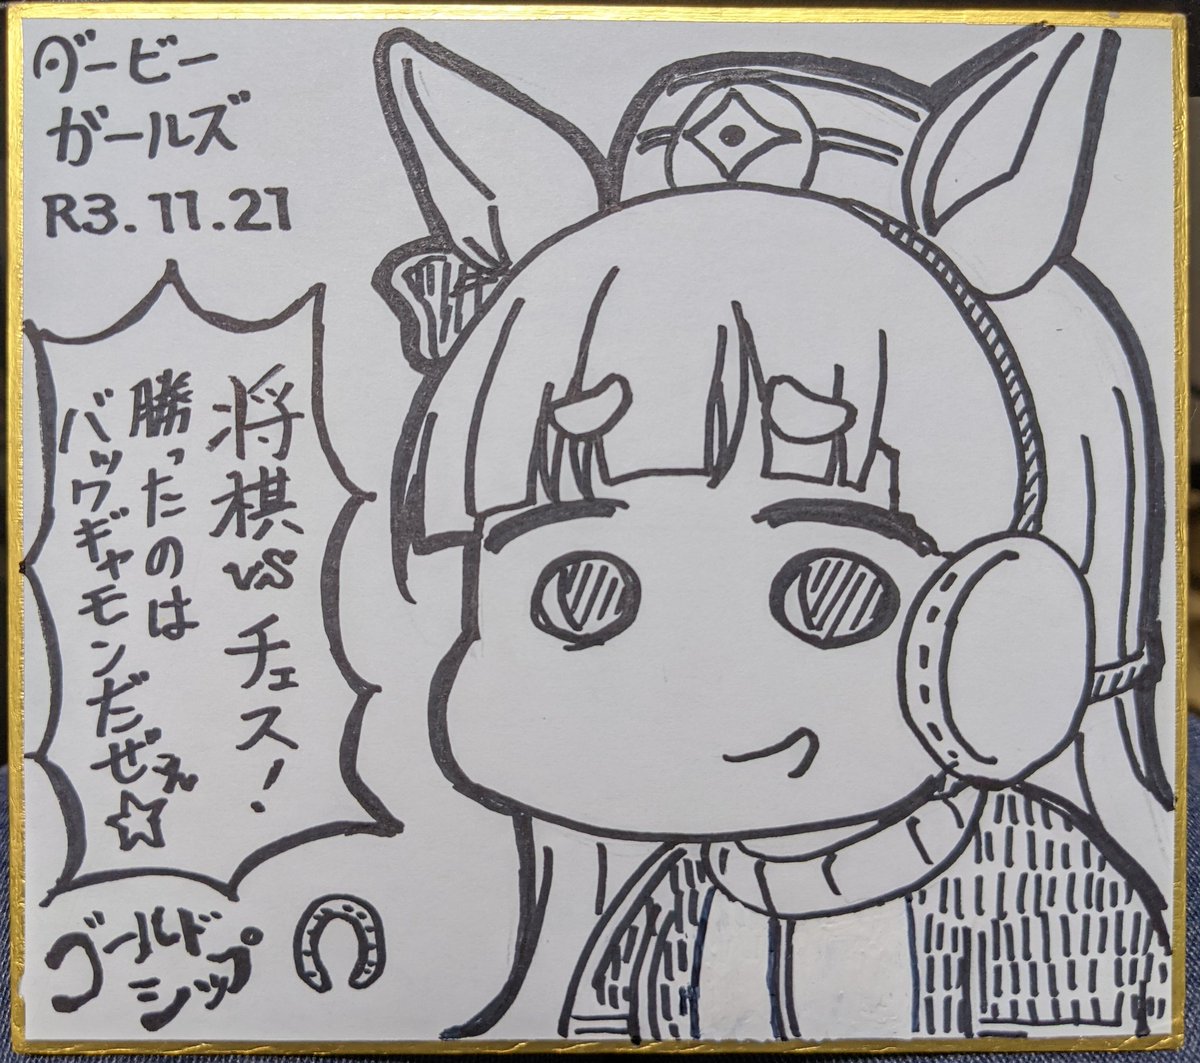 ダービー
ガールズ
R3.11.21
将棋vsチェス!
勝ったのは
バックギャモンだぜぇ☆
ゴールド
シップ